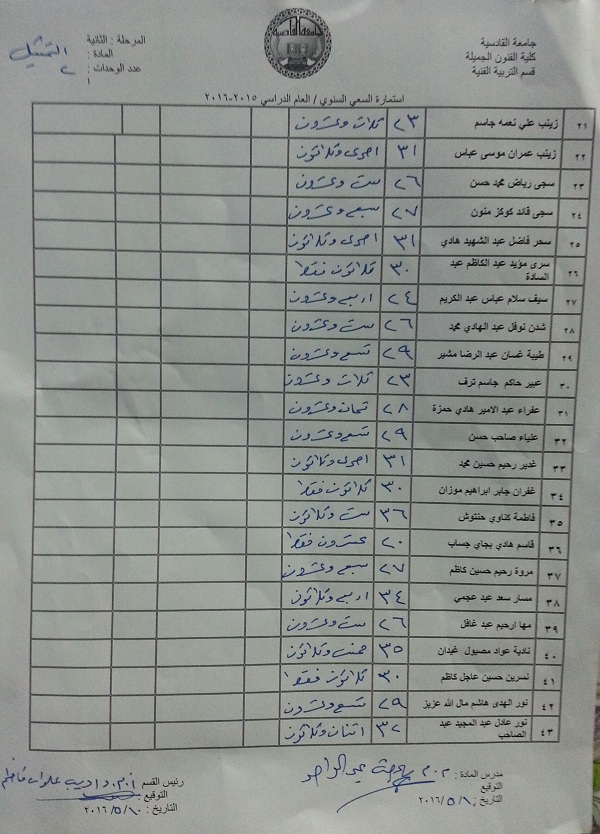 جامعة القادسية
كلية الفنون الجميلة
قسم التربية الفنية
جامعة القادسية
المرحلة : الثانية
المادة : التمثيل
عدد الوحدات : ٢
استمارة السعي السنوي / العام الدراسي ٢٠١٥-٢٠١٦
٢١ زينب علي نعمه جاسم ٢٣ ثلاث وعشرون
٢٢ زينب عمران موسى عباس ٣١ احدى وثلاثون
٢٣ سجى رياض محمد حسن ٢٦ ست وعشرون
٢٤ سجى قائد كوكز منون ٢٧ سبع وعشرون
٢٥ سحر فاضل عبد الشهيد هادي ٣١ احدى وثلاثون
٢٦ سرى مؤيد عبد الكاظم عبد السادة ٣٠ ثلاثون فقط
٢٧ سيف سلام عباس عبد الكريم ٢٤ اربع وعشرون
٢٨ شدن نوفل عبد الهادي محمد ٢٦ ست وعشرون
٢٩ طيبة غسان عبد الرضا مشير ٢٩ تسع وعشرون
٣٠ عبير حاكم جاسم ترف ٢٣ ثلاث وعشرون
٣١ عفراء عبد الامير هادي حمزة ٢٨ ثمان وعشرون
٣٢ علياء صاحب حسن ٢٩ تسع وعشرون
٣٣ غدير رحيم حسين محمد ٣١ احدى وثلاثون
٣٤ غفران جابر ابراهيم موزان ٣٠ ثلاثون فقط
٣٥ فاطمة كناوي حنتوش ٣٦ ست وثلاثون
٣٦ قاسم هادي بجاي جساب ٢٠ عشرون فقط
٣٧ مروة رحيم حسين كاظم ٢٧ سبع وعشرون
٣٨ مسار سعد عبد عجمي ٣٤ اربع وثلاثون
٣٩ مها ارحيم عبد غافل ٢٦ ست وعشرون
٤٠ نادية عواد مصيول غيدان ٣٥ خمس وثلاثون
٤١ نسرين حسين عاجل كاظم ٣٠ ثلاثون فقط
٤٢ نور الهدى هاشم مال الله عزيز ٢٩ تسع وعشرون
٤٣ نور عادل عبد المجيد عبد الصاحب ٣٢ اثنان وثلاثون
مدرس المادة : م.م بهجة عبد الواحد
التوقيع
التاريخ : ٢٠١٦/٥/١٠
رئيس القسم أ.م.د اديب علوان كاظم
التوقيع
التاريخ : ٢٠١٦/٥/١٠